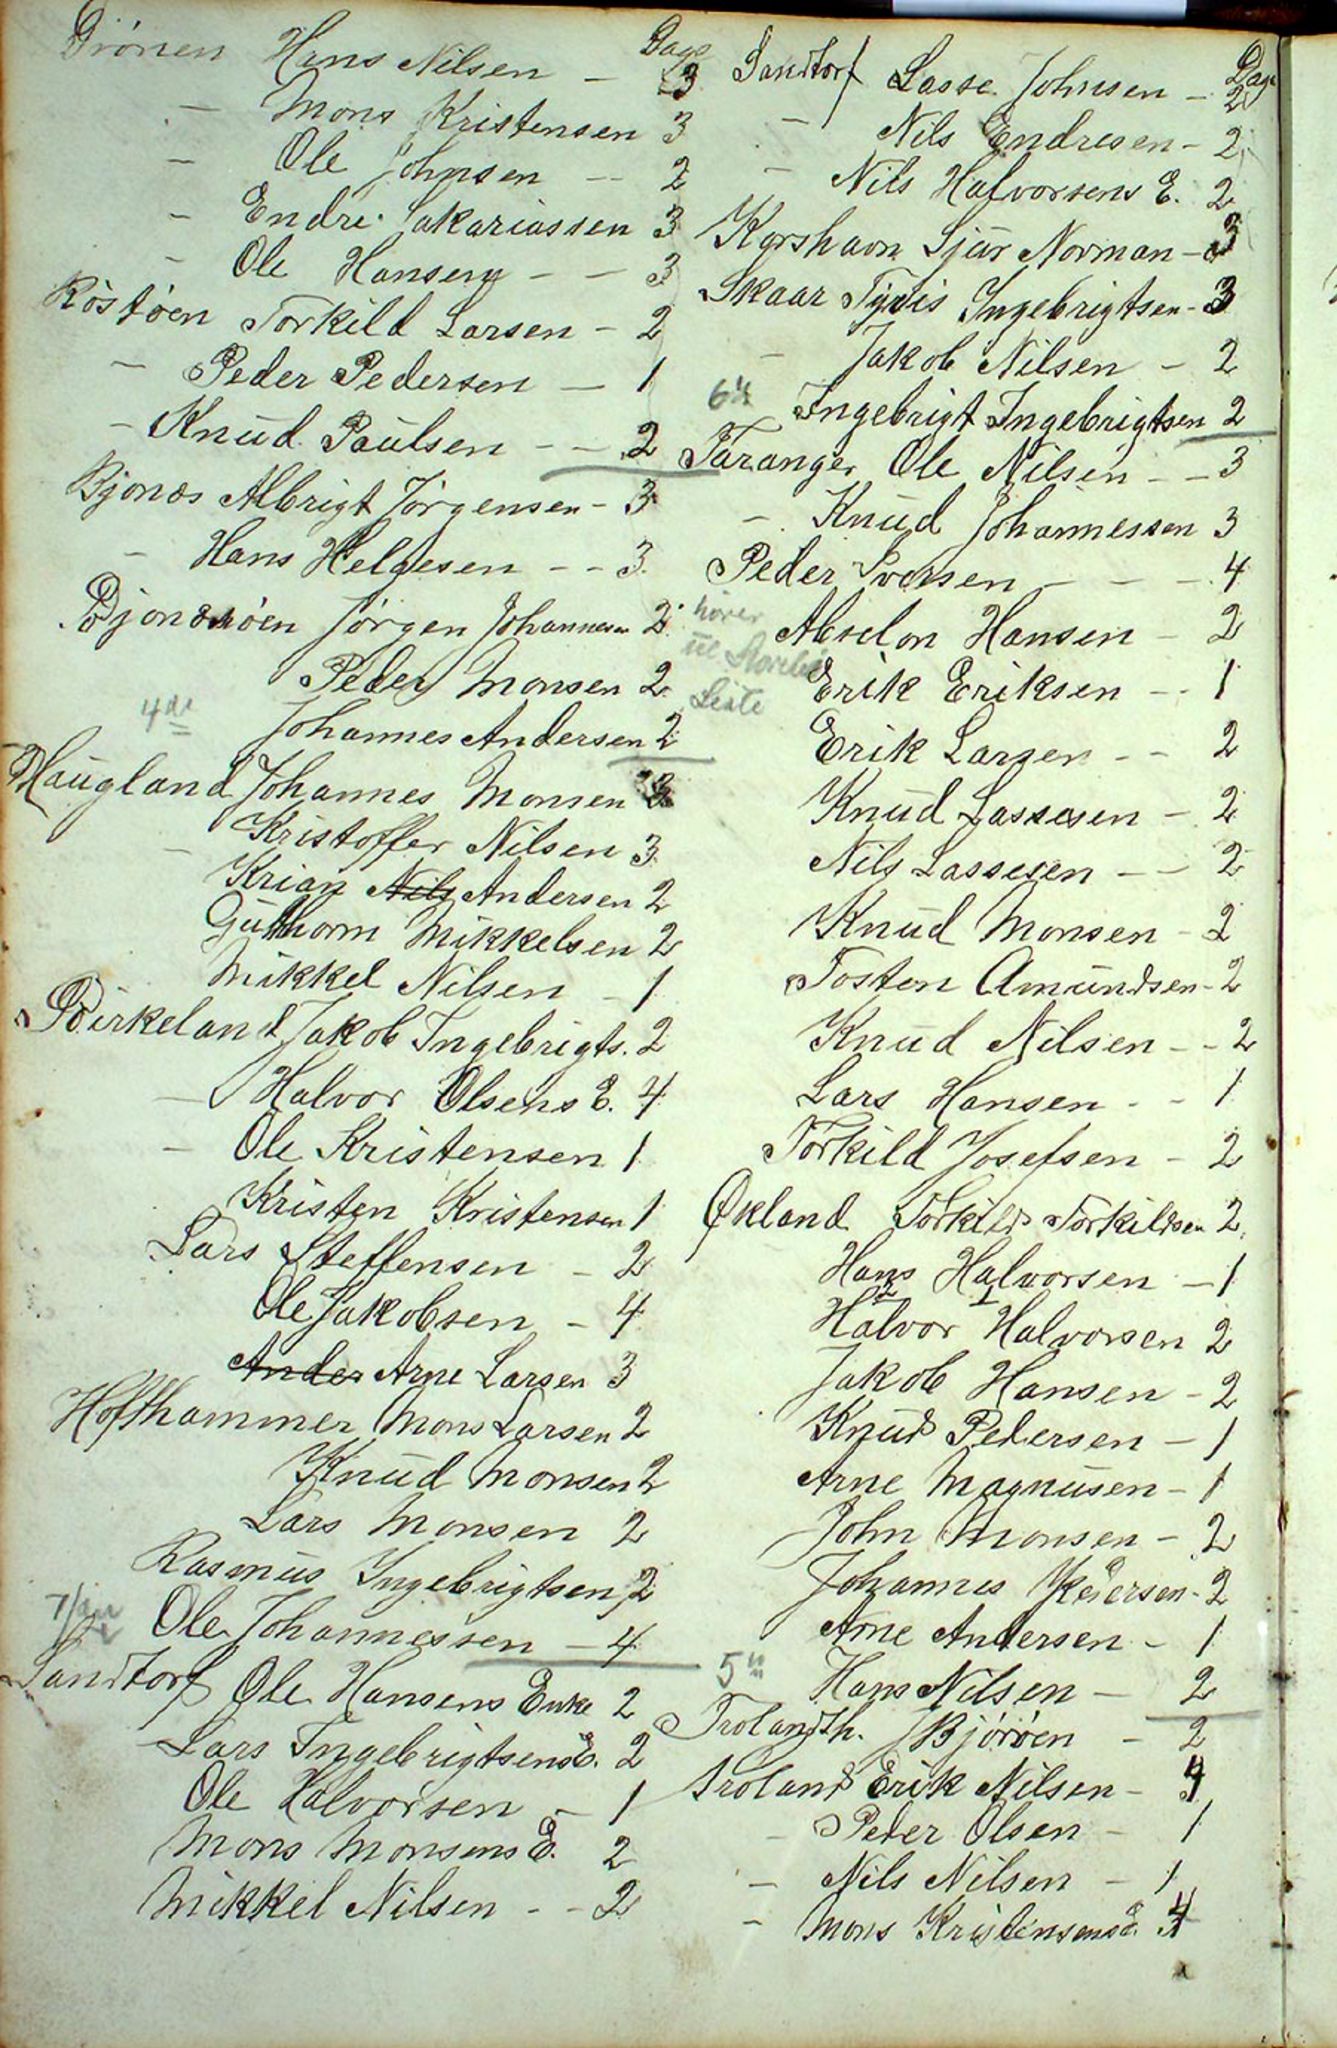 Drönen Hans Nilsen - Dage 3
- Mons Kristensen 3
- Ole Johnsen - 2
- Endre Sakariassen 3
- Ole Hansen - - 3
Röstöen Torkild Larsen - 2
- Peder Pedersen - 1
- Knud Paulsen - - 2
Bjönæs Albrigt Jörgensen - 3
- Hans Helgesen - - 3
Jörgen Johannesen 2
Peder Monsen 2
4de Johannes Andersen 2
Haugland Johannes Monsen 3
- Kristoffer Nilsen 3
Krian Nils Andersen 2
Guthorm Mikkelsen 2
Mikkel Nilsen - 1
Birkeland Jakob Ingebrigts. 2
- Halvor Olsens E. 4
- Ole Kristensen 1
Kristen Kristensen 1
Lars Steffensen - 2
Ole Jakobsen - 4
Ander Arne Larsen 3
Hofthammer Mons Larsen 2
Knud Monsen 2
Lars Monsen 2
Rasmus Ingebrigtsen 2
7/de Ole Johannessen - 4
Sandtorf Ole Hansens Enke 2
Lars Ingebrigtsens E. 2
Ole Halvorsen - 1
Mons Monsens E. 2
Mikkel Nilsen - - 2
Sandtorf Lasse Johnsen - Dage 2
- Nils Endresen - 2
- Nils Halvorsens E. 2
Korshavn Sjur Norman - 3
Skaar Ingebrigtsen - 3
- Jakob Nilsen - 2
6te Ingebrigt Ingebrigtsen 2
Taranger Ole Nilsen - - 3
- Knud Johannessen 3
Peder Iversen - - - 4
hörer Abselon Hansen - 2
til Erik Eriksen - - 1
Liste
Erik Larsen - - 2
Knud Lassesen - 2
Nils Lassesen - - 2
Knud Monsen - 2
Tosten Amundsen - 2
Knud Nilsen - - 2
Lars Hansen - - 1
Torkild Josefsen - 2
Økland Torkild Torkildsen 2
Hans Halvorsen - 1
2 1
Halvor Halvorsen 2
Jakob Hansen - 2
Knud Pedersen - 1
Arne Magnusen - 1
John Monsen - 2
Johannes Pedersen - 2
Arne Andersen - 1
5te Hans Nilsen - 2
Trolandsh. Björöen - 2
Troland Erik Nilsen - 4
- Peder Olsen - 1
- Nils Nilsen - 1
- Mons Kristensens E. 4